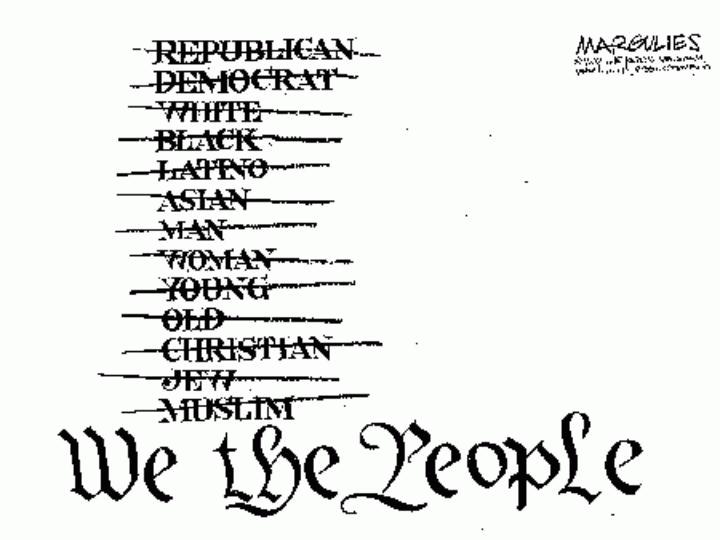 REPUBLICAN
DEMOCRAT
WHITE
BLACK
LATINO
ASIAN
MAN
WOMAN
YOUNG
OLD
CHRISTIAN
JEW
MUSLIM
We the People
MARGULIES